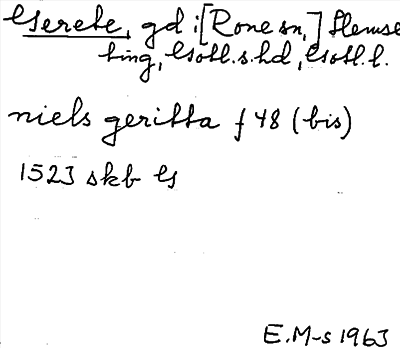 Gerete, gd i [Rone sn,] Hemse
ting, Gotl.s.hd, Gotl.l.
niels geritta f 48 (bis)
1523 skb G
E.M-s 1963